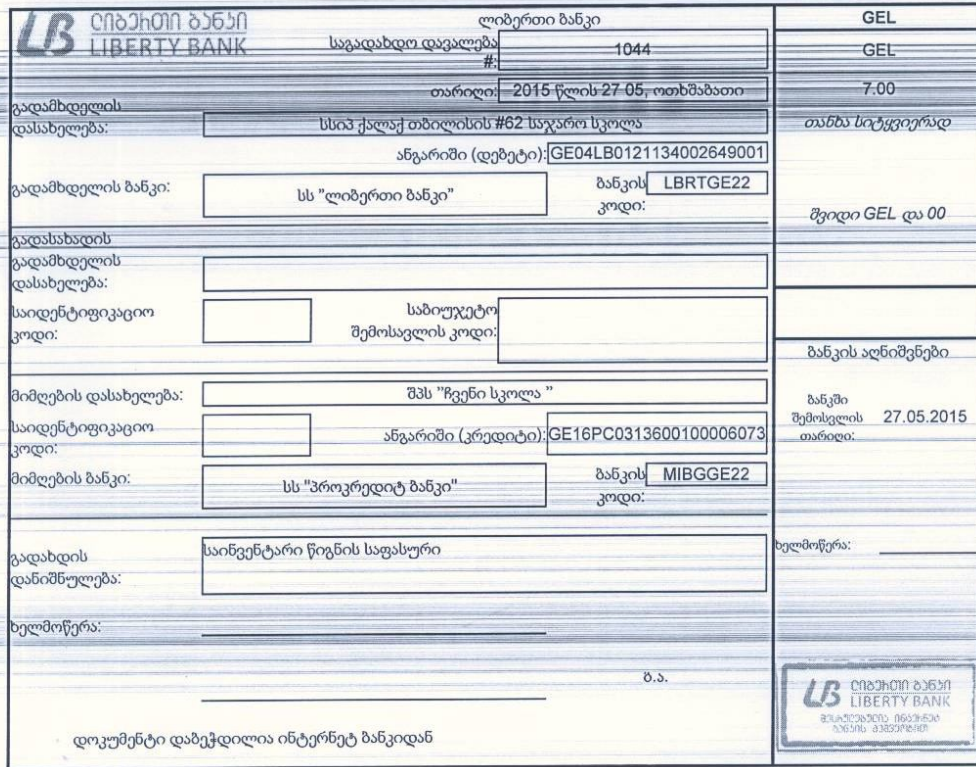 ლიბერთი ბანკი
LIBERTY BANK
ლიბერთი ბანკი
საგადახდო დავალება #: 1044
თარიღი: 2015 წლის 27 05, ოთხშაბათი
გადამხდელის
დასახელება: სსიპ ქალაქ თბილისის #62 საჯარო სკოლა
ანგარიში (დებეტი): GE04LB0121134002649001
გადამხდელის ბანკი: სს "ლიბერთი ბანკი" ბანკის კოდი: LBRTGE22
გადასახადის
გადამხდელის
დასახელება:
საიდენტიფიკაციო კოდი: საბიუჯეტო შემოსავლის კოდი:
მიმღების დასახელება: შპს "ჩვენი სკოლა "
საიდენტიფიკაციო კოდი: ანგარიში (კრედიტი): GE16PC0313600100006073
მიმღების ბანკი: სს "პროკრედიტ ბანკი" ბანკის კოდი: MIBGGE22
გადახდის
დანიშნულება: საინვენტარი წიგნის საფასური
ხელმოწერა:
ბ.ა.
დოკუმენტი დაბეჭდილია ინტერნეტ ბანკიდან
GEL
GEL
7.00
თანხა სიტყვიერად
შვიდი GEL და 00
ბანკის აღნიშვნები
ბანკში
შემოსვლის 27.05.2015
თარიღი:
ხელმოწერა:
ლიბერთი ბანკი
LIBERTY BANK
შესრულებულია ინტერნეტ
ბანკის მეშვეობით